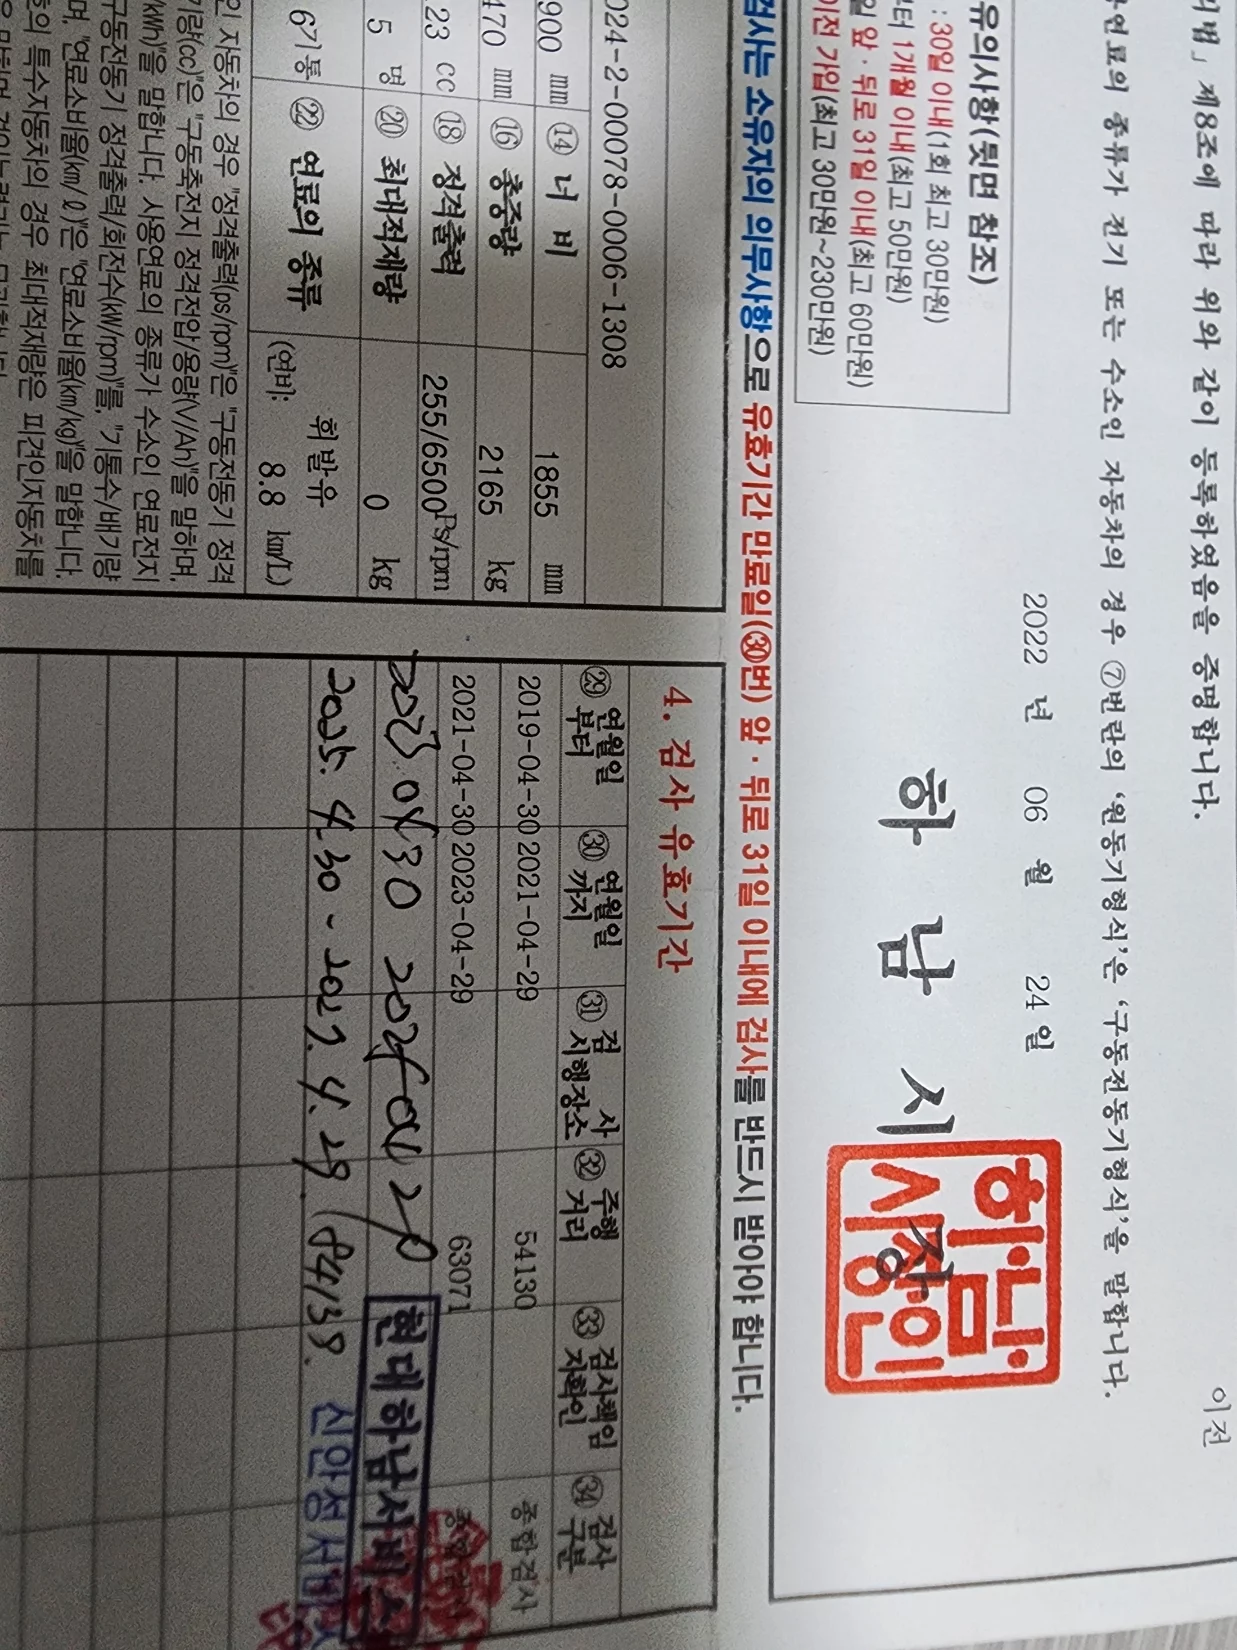 제8조에 따라 위와 같이 등록하였음을 증명합니다.
이전
연료의 종류가 전기 또는 수소인 자동차의 경우 ⑦번란의 '원동기형식'은 '구동전동기형식'을 말합니다.
2022 년 06 월 24 일
유의사항(뒷면 참조)
: 30일 이내(1회 최고 30만원)
1개월 이내(최고 50만원)
앞·뒤로 31일 이내(최고 60만원)
가입(최고 30만원~230만원)
하 남 시 장
하남시장인
검사는 소유자의 의무사항으로 유효기간 만료일(㉚번) 앞·뒤로 31일 이내에 검사를 반드시 받아야 합니다.
024-2-00078-0006-1308
900 mm ⑭ 너 비 1855 mm
470 mm ⑯ 총중량 2165 kg
23 cc ⑱ 정격출력 255/6500Ps/rpm
5 명 ⑳ 최대적재량 0 kg
6기통 ㉒ 연료의 종류 휘발유
(연비: 8.8 km/L)
인 자동차의 경우 "정격출력(ps/rpm)"은 "구동전동기 정격
기량(cc)"은 "구동축전지 정격전압/용량(V/Ah)"을 말하며,
/kWh)"을 말합니다. 사용연료의 종류가 수소인 연료전지
구동전동기 정격출력/회전수(kW/rpm)"를, "기통수/배기량
며, "연료소비율(km/ℓ)"은 "연료소비율(km/kg)"을 말합니다.
특수자동차의 경우 최대적재량은 피견인자동차를
4. 검사 유효기간
㉙ 연월일 부터 ㉚ 연월일 까지 ㉛ 검 사 시행장소 ㉜ 주행 거리 ㉝ 검사책임 자확인 ㉞ 검사 구분
2019-04-30 2021-04-29 54130 종합검사
2021-04-30 2023-04-29 63071 종합검사
2023 04 30 2025 04 29 현대하남서비스
2025. 4. 30 - 2027. 4. 29. (84139. 신안성서비스